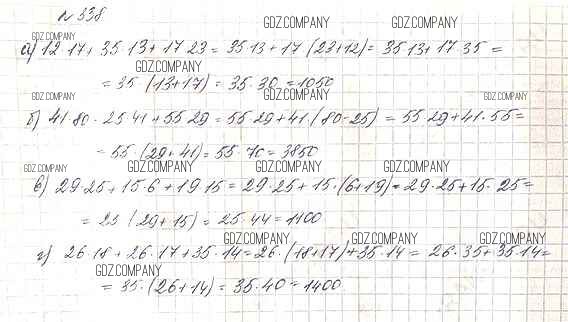 № 338
GDZ.COMPANY GDZ.COMPANY
GDZ.COMPANY
а) 12·17 + 35·13 + 17·23 = 35·13 + 17·(23+12) = 35·13 + 17·35 =
GDZ.COMPANY
= 35·(13+17) = 35·30 = 1050
GDZ.COMPANY GDZ.COMPANY GDZ.COMPANY
б) 41·80 - 25·41 + 55·29 = 55·29 + 41·(80-25) = 55·29 + 41·55 =
= 55·(29+41) = 55·70 = 3850
GDZ.COMPANY GDZ.COMPANY GDZ.COMPANY GDZ.COMPANY
в) 29·25 + 15·6 + 19·15 = 29·25 + 15·(6+19) = 29·25 + 15·25 =
= 25 (29+15) = 25·44 = 1100
GDZ.COMPANY GDZ.COMPANY GDZ.COMPANY
г) 26·18 + 26·17 + 35·14 = 26·(18+17) + 35·14 = 26·35 + 35·14 =
GDZ.COMPANY
= 35·(26+14) = 35·40 = 1400